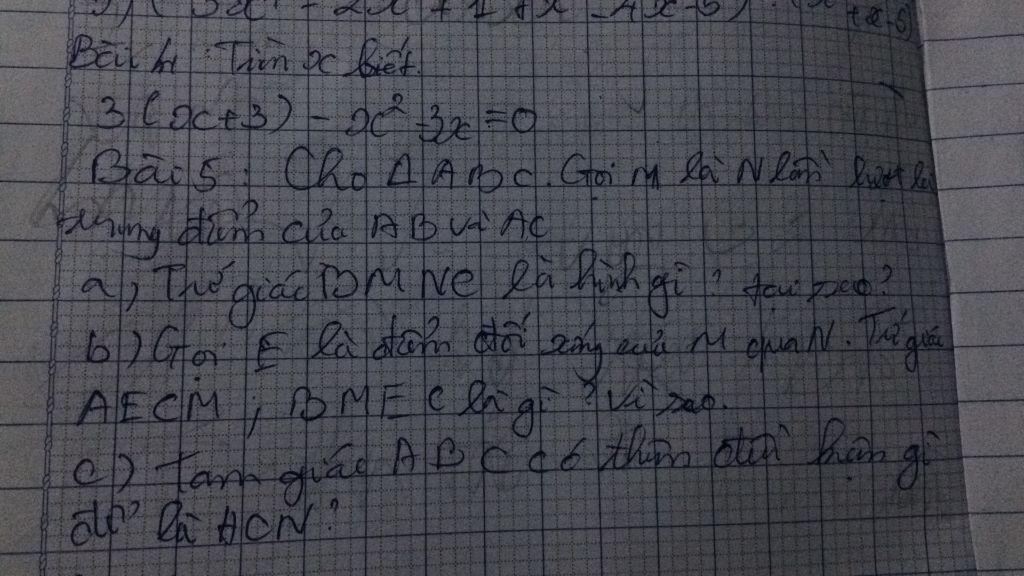 (3x² - 2x + 1 + x² - 4x - 5) : (x + x - 5)
Bài 4 : Tìm x biết.
3 (x+3) - x² - 3x = 0
Bài 5 : Cho Δ ABC. Gọi M là N lần lượt là
trung điểm của AB và AC
a, Tứ giác BMNC là hình gì ? tại sao ?
b) Gọi E là điểm đối xứng của M qua N. Tứ giác
AECM ; BMEC là gì ? Vì sao.
c) Tam giác ABC có thêm điều kiện gì
để là HCN ?